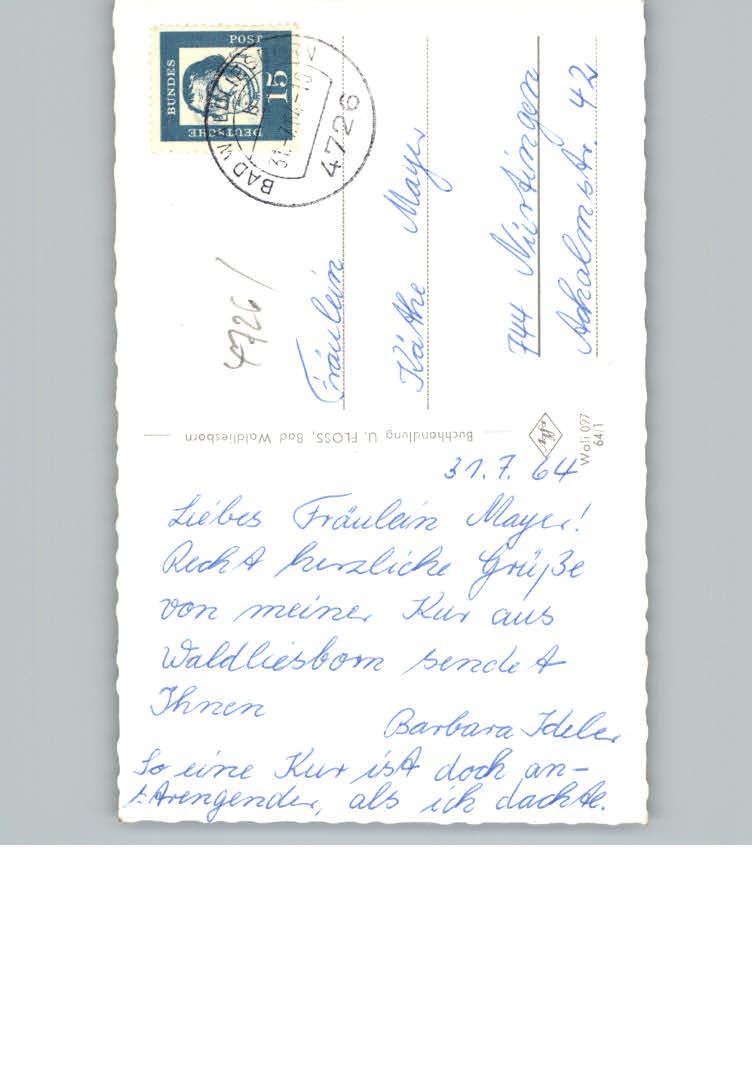 31.7.64
Liebes Fräulein Mayer!
Recht herzliche Grüße
von meiner Kur aus
Waldliesborn sendet
Ihnen
Barbara Ideler
So eine Kur ist doch an-
strengender, als ich dachte.
Fräulein
Käthe Mayer
744 Nürtingen
Achalmstr. 42
4726/
DEUTSCHE
BUNDES
POST
15
BAD
4726
Buchhandlung U. FLOSS, Bad Waldliesborn
Wali 027
64/1